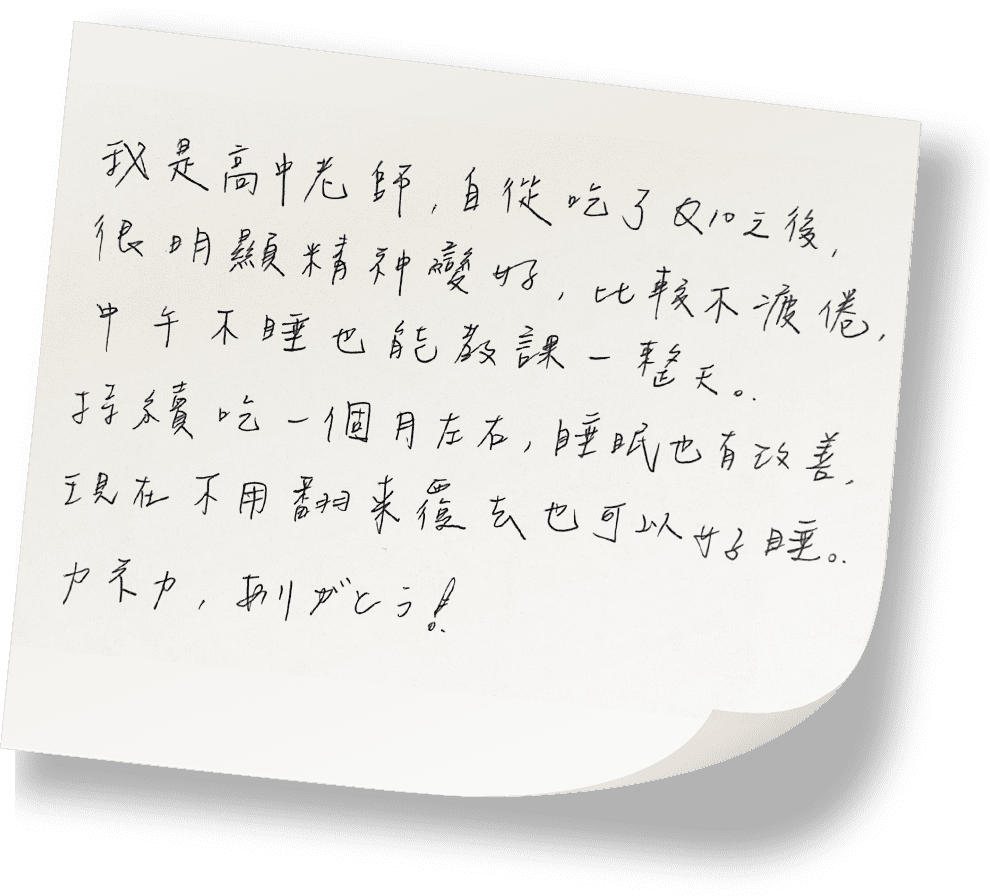 我是高中老師,自從吃了Q10之後,
很明顯精神變好,比較不疲倦,
中午不睡也能教課一整天。
持續吃一個月左右,睡眠也有改善,
現在不用翻來覆去也可以好睡。
カネカ,ありがとう!